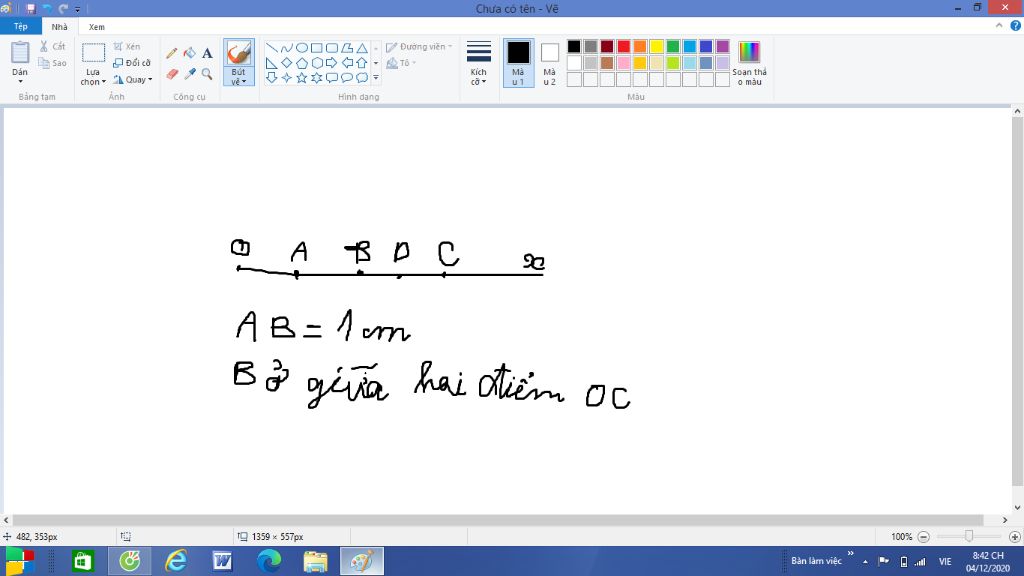 Chưa có tên - Vẽ
Tệp Nhà Xem
Dán
Cắt
Sao
Bảng tạm
Lựa chọn
Xén
Đổi cỡ
Quay
Ảnh
A
Công cụ
Bút vẽ
Đường viền
Tô
Hình dạng
Kích cỡ
Mà u 1
Mà u 2
Soạn thả o màu
Màu
O A B D C x
AB = 1 cm
B ở giữa hai điểm OC
482, 353px
1359 × 557px
100%
Bàn làm việc
VIE
8:42 CH
04/12/2020